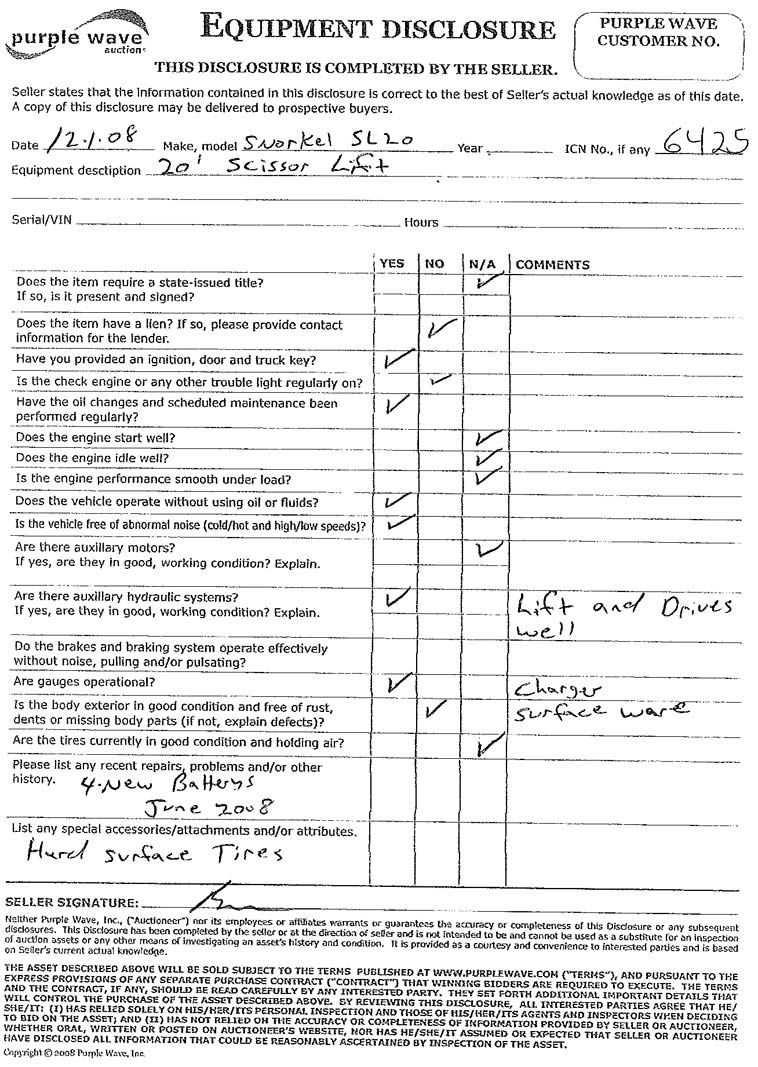 purple wave
auction
EQUIPMENT DISCLOSURE
PURPLE WAVE
CUSTOMER NO.
THIS DISCLOSURE IS COMPLETED BY THE SELLER.
Seller states that the information contained in this disclosure is correct to the best of Seller's actual knowledge as of this date.
A copy of this disclosure may be delivered to prospective buyers.
Date 12.1.08 Make, model Snorkel SL20 Year ICN No., if any 6425
Equipment desctiption 20' Scissor Lift
Serial/VIN Hours
YES NO N/A COMMENTS
Does the item require a state-issued title? ✓
If so, is it present and signed?
Does the item have a lien? If so, please provide contact ✓
information for the lender.
Have you provided an ignition, door and truck key? ✓
Is the check engine or any other trouble light regularly on? ✓
Have the oil changes and scheduled maintenance been ✓
performed regularly?
Does the engine start well? ✓
Does the engine idle well? ✓
Is the engine performance smooth under load? ✓
Does the vehicle operate without using oil or fluids? ✓
Is the vehicle free of abnormal noise (cold/hot and high/low speeds)? ✓
Are there auxillary motors? ✓
If yes, are they in good, working condition? Explain.
Are there auxillary hydraulic systems? ✓ Lift and Drives
If yes, are they in good, working condition? Explain. well
Do the brakes and braking system operate effectively
without noise, pulling and/or pulsating?
Are gauges operational? ✓ Charger
Is the body exterior in good condition and free of rust, ✓ surface ware
dents or missing body parts (if not, explain defects)?
Are the tires currently in good condition and holding air? ✓
Please list any recent repairs, problems and/or other
history. 4-New Batterys
June 2008
List any special accessories/attachments and/or attributes.
Hurd surface Tires
SELLER SIGNATURE:
Neither Purple Wave, Inc., ("Auctioneer") nor its employees or affiliates warrants or guarantees the accuracy or completeness of this Disclosure or any subsequent
disclosures. This Disclosure has been completed by the seller or at the direction of seller and is not intended to be and cannot be used as a substitute for an inspection
of auction assets or any other means of investigating an asset's history and condition. It is provided as a courtesy and convenience to interested parties and is based
on Seller's current actual knowledge.
THE ASSET DESCRIBED ABOVE WILL BE SOLD SUBJECT TO THE TERMS PUBLISHED AT WWW.PURPLEWAVE.COM ("TERMS"), AND PURSUANT TO THE
EXPRESS PROVISIONS OF ANY SEPARATE PURCHASE CONTRACT ("CONTRACT") THAT WINNING BIDDERS ARE REQUIRED TO EXECUTE. THE TERMS
AND THE CONTRACT, IF ANY, SHOULD BE READ CAREFULLY BY ANY INTERESTED PARTY. THEY SET FORTH ADDITIONAL IMPORTANT DETAILS THAT
WILL CONTROL THE PURCHASE OF THE ASSET DESCRIBED ABOVE. BY REVIEWING THIS DISCLOSURE, ALL INTERESTED PARTIES AGREE THAT HE/
SHE/IT: (I) HAS RELIED SOLELY ON HIS/HER/ITS PERSONAL INSPECTION AND THOSE OF HIS/HER/ITS AGENTS AND INSPECTORS WHEN DECIDING
TO BID ON THE ASSET; AND (II) HAS NOT RELIED ON THE ACCURACY OR COMPLETENESS OF INFORMATION PROVIDED BY SELLER OR AUCTIONEER,
WHETHER ORAL, WRITTEN OR POSTED ON AUCTIONEER'S WEBSITE, NOR HAS HE/SHE/IT ASSUMED OR EXPECTED THAT SELLER OR AUCTIONEER
HAVE DISCLOSED ALL INFORMATION THAT COULD BE REASONABLY ASCERTAINED BY INSPECTION OF THE ASSET.
Copyright © 2008 Purple Wave, Inc.